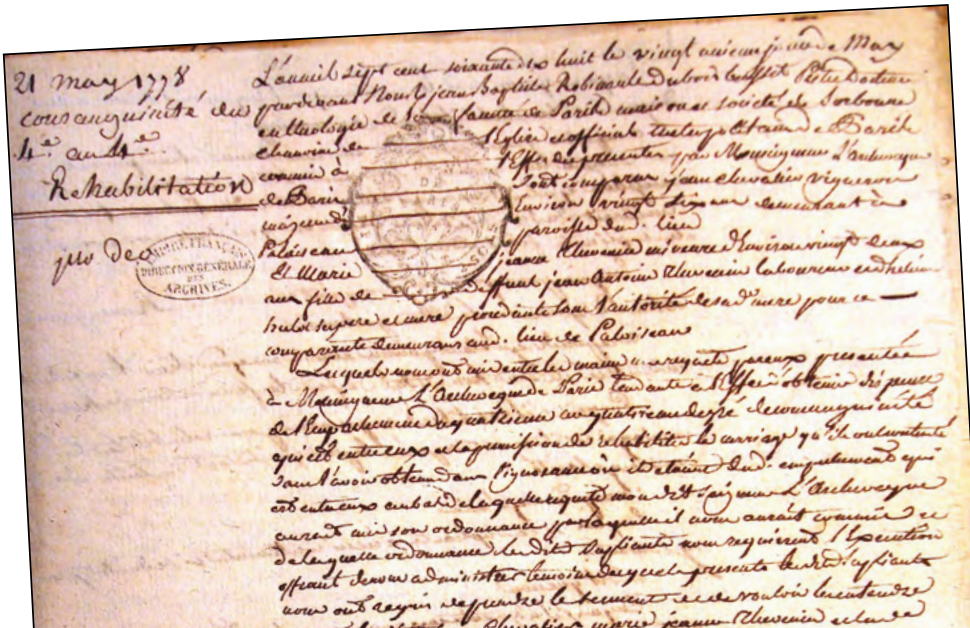 21 may 1778
consanguinité du
4.e au 4.e
Rehabilitation
L'an mil sept cent soixante dix huit le vingt unieme jour de May
pardevant Nous Jean Baptiste Robinault Dubois Prêtre Docteur
en theologie de la faculté de Paris maison et societé de Sorbonne
chanoine de l'Eglise et official de Paris
commis à l'Effet des presentes par Monseigneur L'archeveque
de Paris Sont comparus jean chevalier vigneron
majeur d'Environ vingt six ans demeurant à
Palaiseau paroisse dud. lieu
Et Marie jeanne Thevenin mineure d'Environ vingt deux
ans fille de deffunt jean Antoine Thevenin laboureur et d'helene
ses pere et mere procedante sous l'autorité de sad. mere pour ce
comparante demeurans aud. lieu de Palaiseau
Lesquels nous ont mis entre les mains une requete par eux presentée
à Monseigneur L'Archeveque de Paris tendante à l'Effet d'obtenir dispense
de l'Empechement du quatrieme au quatrieme degré de consanguinité
qui est entre eux et la permission de rehabiliter le mariage qu'ils ont contracté
sans l'avoir obtenu dans l'ignorance où ils étoient dud. empechement qui
est entre eux au bas de laquelle requete mondit Seigneur L'Archeveque
auroit mis son ordonnance par laquelle il nous auroit commis et
de laquelle ordonnance lesdits supliants nous requierent l'Execution
offrant de nous administrer temoins desquels presents lesdits supliants
nous ont requis de prendre le serment et de vouloir les entendre
Chevalier marie jeanne Thevenin
DIRECTION GENERALE
DES
ARCHIVES.